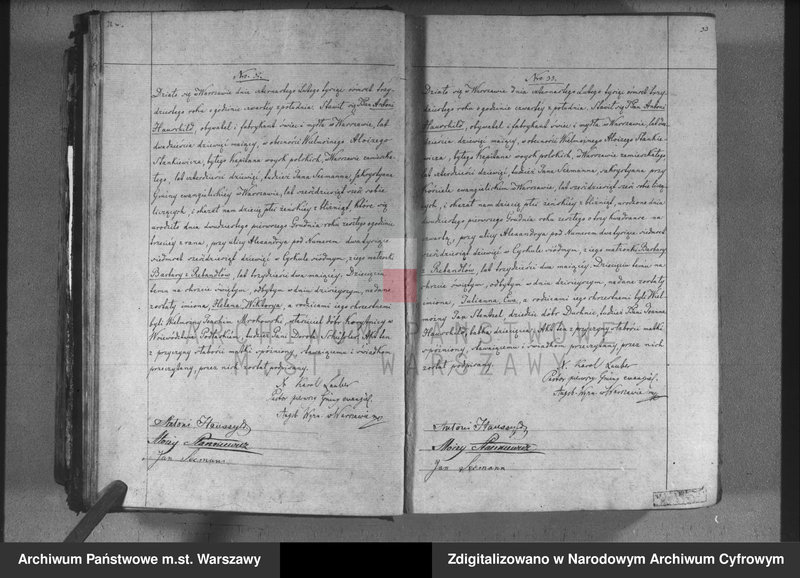 Nro. 32.
Działo się w Warszawie dnia czternastego Lutego tysiąc ośmset trzy-
dziestego roku o godzinie czwartej z południa. Stawił się Pan Antoni
obywatel i fabrykant świec i mydła w Warszawie, lat
dwadzieścia dziewięć mający, w obecności Wielmożnego Aloizego
Stankiewicza, byłego Kapitana woysk polskich, w Warszawie zamieszka-
łego, lat czterdzieści dziewięć, tudzież Jana Seemanna, zakrystyana
Gminy ewangelickiey w Warszawie, lat sześćdziesiąt sześć sobie
liczących, i okazał nam dziecię płci żeńskiey z bliźniąt które się
urodziło dnia dwudziestego pierwszego Grudnia roku zeszłego o godzinie
trzeciey z rana, przy ulicy Alexandrya pod Numerem dwa tysiące
siedmset sześćdziesiąt dziewięć w Cyrkule siódmym, z iego małżonki
Barbary z lat trzydzieści dwa maiącey. Dziecięciu
temu na chrzcie świętym, odbytym w dniu dzisieyszym, nadane
zostały imiona, Helena Wiktorya, a rodzicami iego chrzestnemi
byli Wielmożny Joachim właściciel dóbr w
Woiewództwie Podlaskiem, tudzież Pani Dorota Akt ten
z przyczyny słabości matki opóźniony, stawaiącemu i świadkom
przeczytany, przez nich został podpisany.
X. Karol Lauber
Pastor pierwszy Gminy ewangiel.
Augsb. Wyzn. w Warszawie
Antoni
Aloizy Stankiewicz
Jan Seemann
33
Nro 33.
Działo się w Warszawie dnia czternastego Lutego tysiąc ośmset trzy-
dziestego roku o godzinie czwartej z południa. Stawił się Pan Antoni
obywatel i fabrykant świec i mydła w Warszawie, lat dwa-
dzieścia dziewięć maiący, w obecności Wielmożnego Aloizego Stankie-
wicza, byłego Kapitana woysk polskich, w Warszawie zamieszkałego
lat czterdzieści dziewięć, tudzież Jana Seemanna, zakrystyana przy
Kościele ewangelickim w Warszawie, lat sześćdziesiąt sześć liczą-
cych, i okazał nam dziecię płci żeńskiey z bliźniąt, urodzone dnia
dwudziestego pierwszego Grudnia roku zeszłego o trzy kwadranse na
czwartą, przy ulicy Alexandrya pod Numerem dwa tysiące siedmset
sześćdziesiąt dziewięć w Cyrkule siódmym, z iego małżonki Barbary
z lat trzydzieści dwa maiącey. Dziecięciu temu na
chrzcie świętym, odbytym w dniu dzisieyszym, nadane zostały
imiona, Julianna, Ewa, a rodzicami iego chrzestnemi byli Wiel-
możny Jan dziedzic dóbr tudzież Pani Joanna
babka dziecięcia. Akt ten z przyczyny słabości matki
opóźniony, stawaiącemu i świadkom przeczytany, przez nich
został podpisany.
X. Karol Lauber
Pastor pierwszy Gminy ewangiel.
Augsb. Wyzn. w Warszawie
Antoni
Aloizy Stankiewicz
Jan Seemann
Archiwum Państwowe m.st. Warszawy
Zdigitalizowano w Narodowym Archiwum Cyfrowym